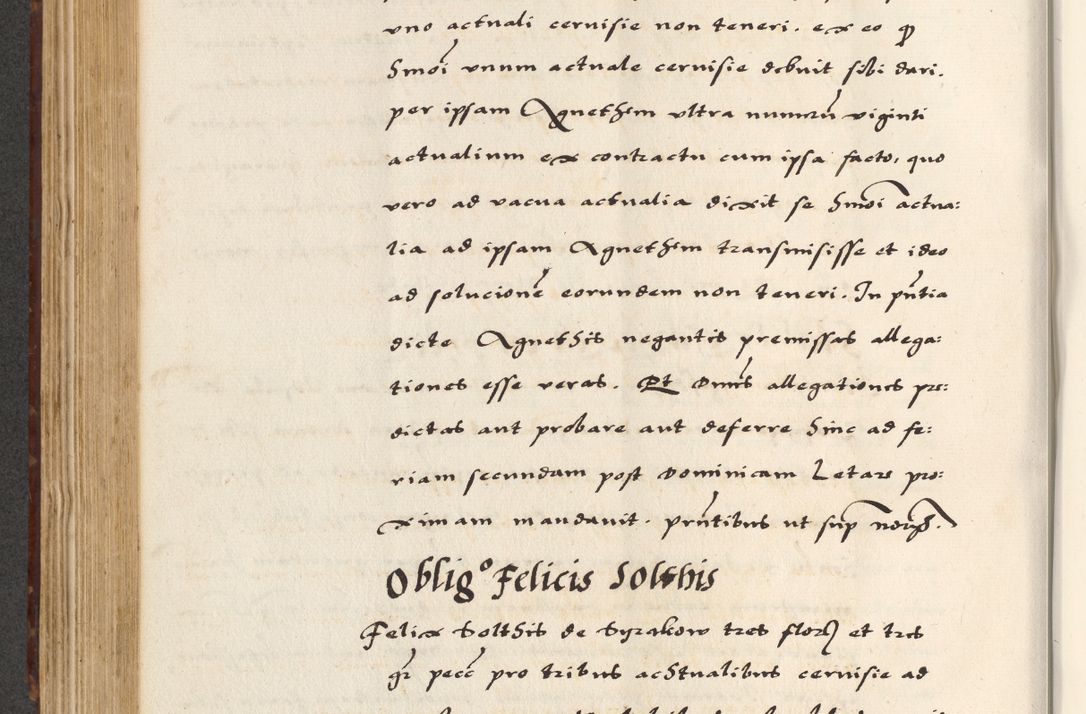 vno actuali cervisie non teneri. ex eo qp
hmoi vnum actuale cervisie debuit sibi dari.
per ipsam Agnethem vltra numerū viginti
actualium ex contractu cum ipsa facto, quo
vero ad vacua actualia dixit se hmoi actua:
lia ad ipsam Agnethem transmisisse et ideo
ad solucionē eorundem non teneri. In pn̄tia
dicte Agnethis negantis premissas allega:
tiones esse veras. Et Dn̄us allegationes pre:
dictas aut probare aut deferre hinc ad fe:
riam secundam post Dominicam Letare pro:
ximam mandauit. prn̄tibus ut sup
Obligo Felicis Solthis
Felix Solthis de Syrakow tres flor et tres
gr pecc pro tribus achtualibus cervisie ad